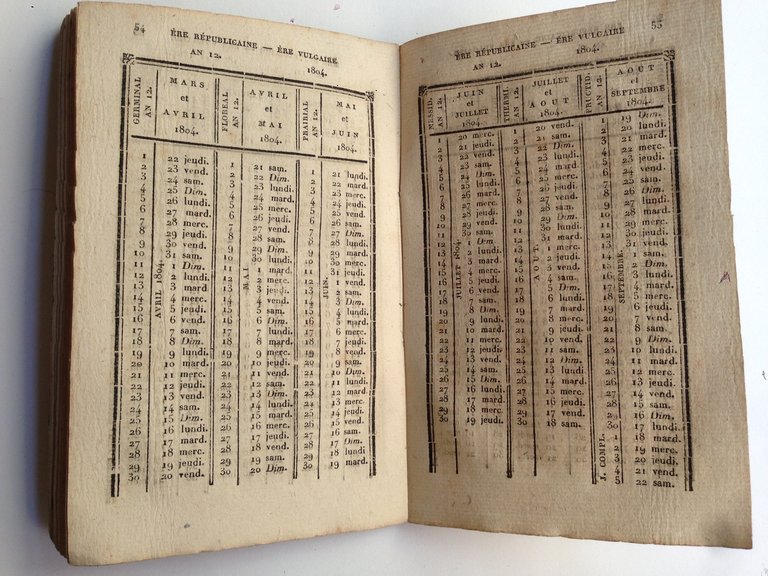 54
ÈRE RÉPUBLICAINE — ÈRE VULGAIRE
AN 12. 1804.
GERMINAL AN 12. MARS et AVRIL 1804. FLORÉAL AN 12. AVRIL et MAI 1804. PRAIRIAL AN 12. MAI et JUIN 1804.
1 22 jeudi. 1 21 sam. 1 21 lundi.
2 23 vend. 2 22 Dim. 2 22 mard.
3 24 sam. 3 23 lundi. 3 23 merc.
4 25 Dim. 4 24 mard. 4 24 jeudi.
5 26 lundi. 5 25 merc. 5 25 vend.
6 27 mard. 6 26 jeudi. 6 26 sam.
7 28 merc. 7 27 vend. 7 27 Dim.
8 29 jeudi. 8 28 sam. 8 28 lundi.
9 30 vend. 9 29 Dim. 9 29 mard.
10 31 sam. 10 30 lundi. 10 30 merc.
AVRIL 1804. MAI. JUIN.
11 1 Dim. 11 1 mard. 11 31 jeudi.
12 2 lundi. 12 2 merc. 12 1 vend.
13 3 mard. 13 3 jeudi. 13 2 sam.
14 4 merc. 14 4 vend. 14 3 Dim.
15 5 jeudi. 15 5 sam. 15 4 lundi.
16 6 vend. 16 6 Dim. 16 5 mard.
17 7 sam. 17 7 lundi. 17 6 merc.
18 8 Dim. 18 8 mard. 18 7 jeudi.
19 9 lundi. 19 9 merc. 19 8 vend.
20 10 mard. 20 10 jeudi. 20 9 sam.
21 11 merc. 21 11 vend. 21 10 Dim.
22 12 jeudi. 22 12 sam. 22 11 lundi.
23 13 vend. 23 13 Dim. 23 12 mard.
24 14 sam. 24 14 lundi. 24 13 merc.
25 15 Dim. 25 15 mard. 25 14 jeudi.
26 16 lundi. 26 16 merc. 26 15 vend.
27 17 mard. 27 17 jeudi. 27 16 sam.
28 18 merc. 28 18 vend. 28 17 Dim.
29 19 jeudi. 29 19 sam. 29 18 lundi.
30 20 vend. 30 20 Dim. 30 19 mard.
55
ÈRE RÉPUBLICAINE — ÈRE VULGAIRE
AN 12. 1804.
MESSID. AN 12. JUIN et JUILLET 1804. THERMI. AN 12. JUILLET et AOUT 1804. FRUCTID. AN 12. AOUT et SEPTEMBRE 1804.
1 20 merc. 1 20 vend. 1 19 Dim.
2 21 jeudi. 2 21 sam. 2 20 lundi.
3 22 vend. 3 22 Dim. 3 21 mard.
4 23 sam. 4 23 lundi. 4 22 merc.
5 24 Dim. 5 24 mard. 5 23 jeudi.
6 25 lundi. 6 25 merc. 6 24 vend.
7 26 mard. 7 26 jeudi. 7 25 sam.
8 27 merc. 8 27 vend. 8 26 Dim.
9 28 jeudi. 9 28 sam. 9 27 lundi.
10 29 vend. 10 29 Dim. 10 28 mard.
11 30 sam. 11 30 lundi. 11 29 merc.
12 1 Dim. 12 31 mard. 12 30 jeudi.
JUILLET 1804. AOUT. SEPTEMBRE.
13 2 lundi. 13 1 merc. 13 31 vend.
14 3 mard. 14 2 jeudi. 14 1 sam.
15 4 merc. 15 3 vend. 15 2 Dim.
16 5 jeudi. 16 4 sam. 16 3 lundi.
17 6 vend. 17 5 Dim. 17 4 mard.
18 7 sam. 18 6 lundi. 18 5 merc.
19 8 Dim. 19 7 mard. 19 6 jeudi.
20 9 lundi. 20 8 merc. 20 7 vend.
21 10 mard. 21 9 jeudi. 21 8 sam.
22 11 merc. 22 10 vend. 22 9 Dim.
23 12 jeudi. 23 11 sam. 23 10 lundi.
24 13 vend. 24 12 Dim. 24 11 mard.
25 14 sam. 25 13 lundi. 25 12 merc.
26 15 Dim. 26 14 mard. 26 13 jeudi.
27 16 lundi. 27 15 merc. 27 14 vend.
28 17 mard. 28 16 jeudi. 28 15 sam.
29 18 merc. 29 17 vend. 29 16 Dim.
30 19 jeudi. 30 18 sam. 30 17 lundi.
J. COMPL.
1 18 mard.
2 19 merc.
3 20 jeudi.
4 21 vend.
5 22 sam.